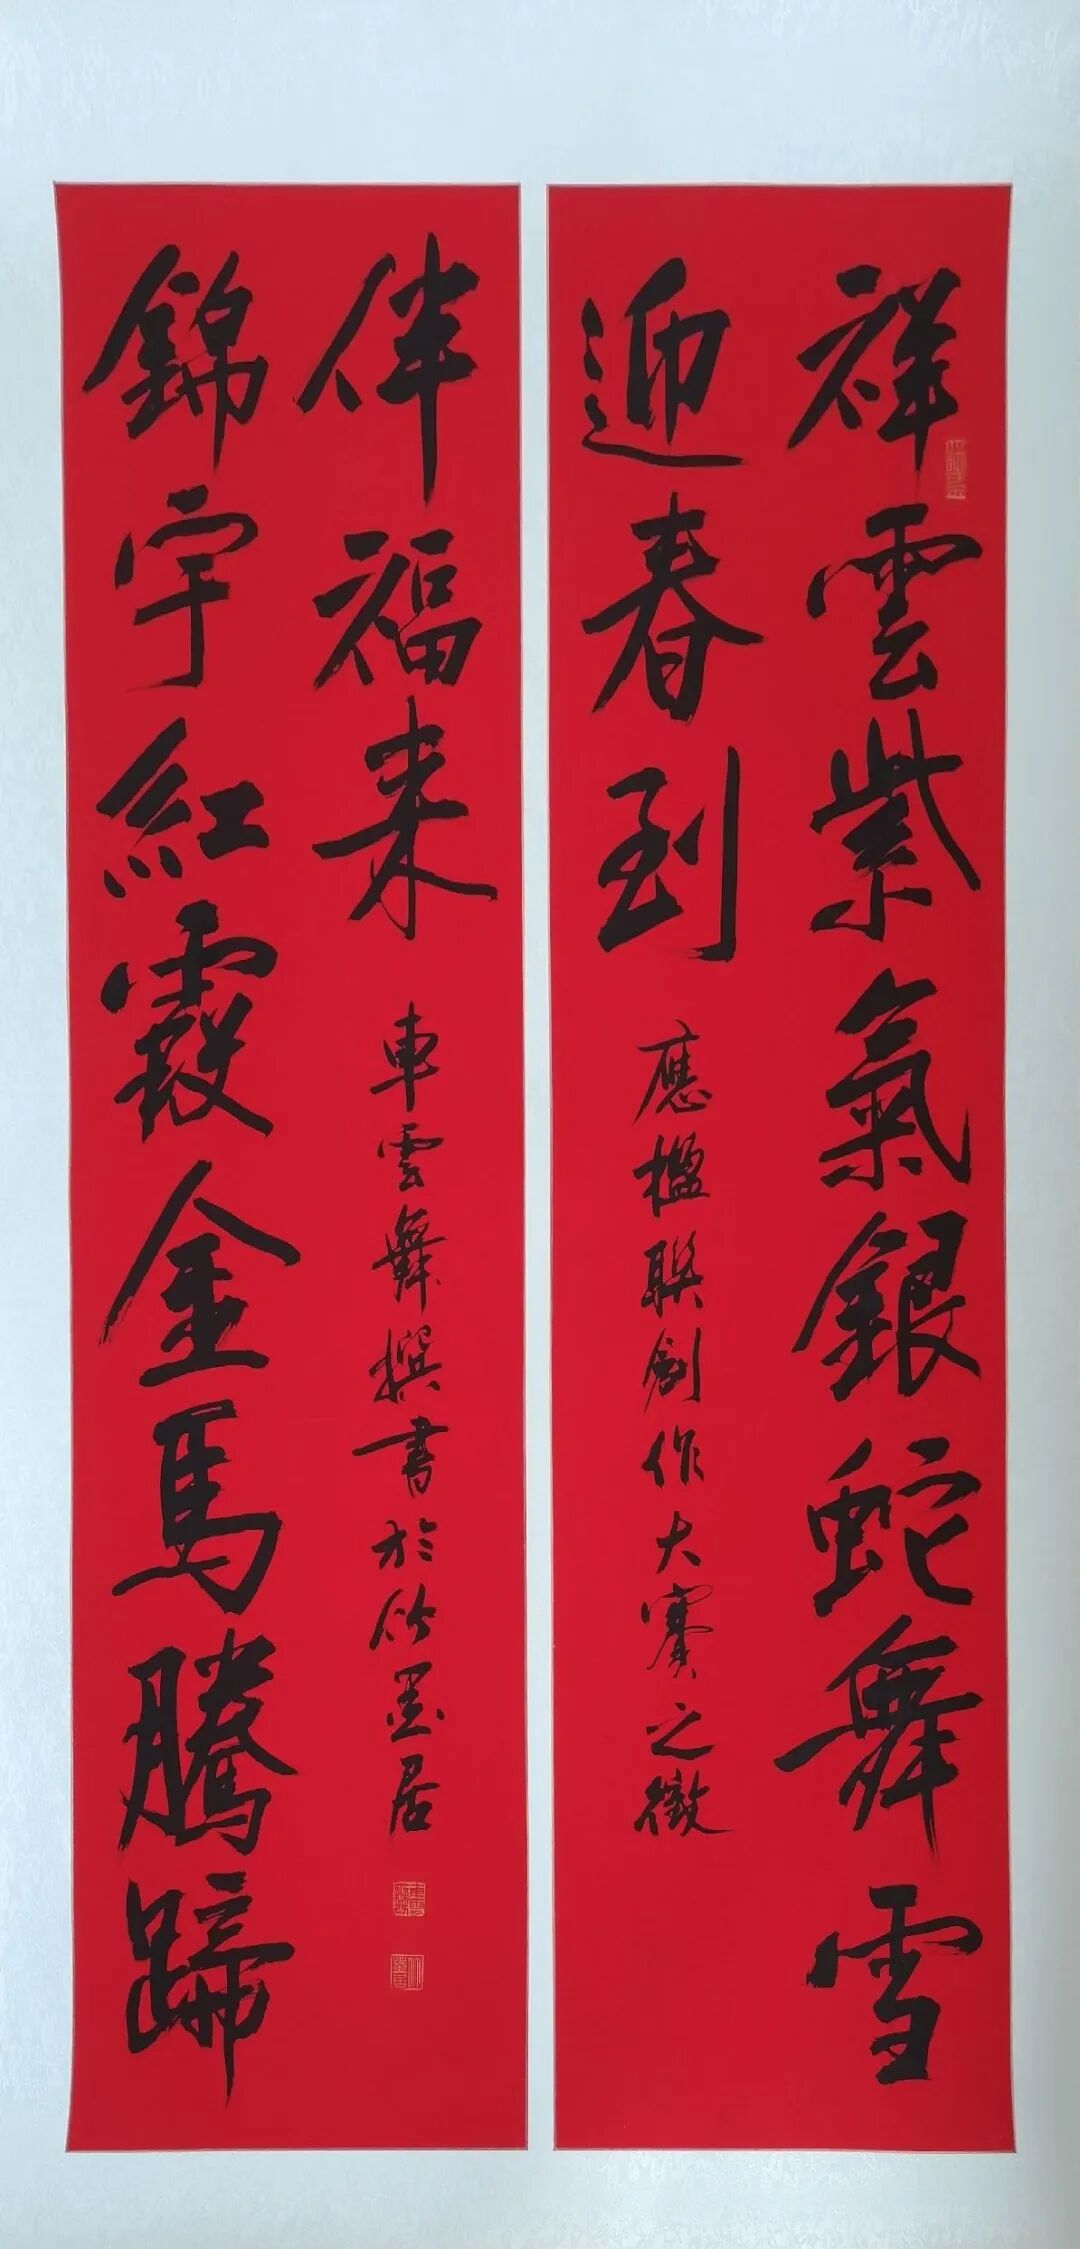 祥雲紫氣銀蛇舞雪
迎春到
應楹聯創作大賽之徵
錦宇紅霞金馬騰蹄
伴福来
車雲舞撰書於竹墨居